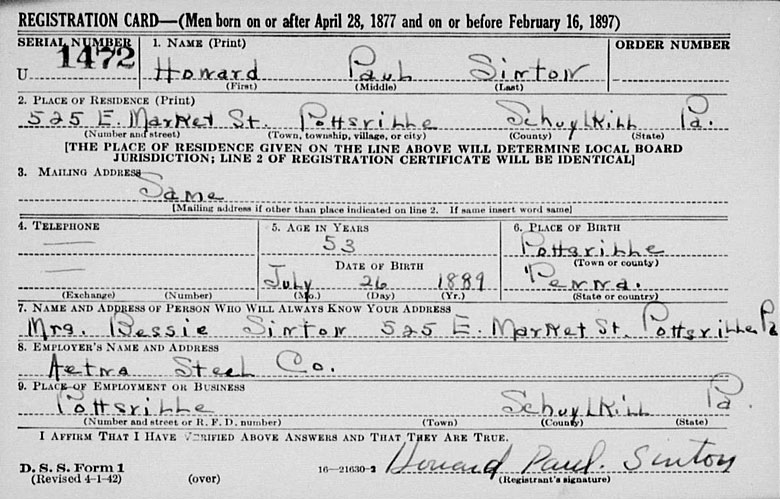 REGISTRATION CARD—(Men born on or after April 28, 1877 and on or before February 16, 1897)
SERIAL NUMBER 1. NAME (Print) ORDER NUMBER
U 1472 Howard Paul Sinton
(First) (Middle) (Last)
2. PLACE OF RESIDENCE (Print)
525 E. Market St. Pottsville Schuylkill Pa.
(Number and street) (Town, township, village, or city) (County) (State)
[THE PLACE OF RESIDENCE GIVEN ON THE LINE ABOVE WILL DETERMINE LOCAL BOARD
JURISDICTION; LINE 2 OF REGISTRATION CERTIFICATE WILL BE IDENTICAL]
3. MAILING ADDRESS
Same
[Mailing address if other than place indicated on line 2. If same insert word same]
4. TELEPHONE 5. AGE IN YEARS 6. PLACE OF BIRTH
53 Pottsville
DATE OF BIRTH (Town or county)
July 26 1889 Penna.
(Exchange) (Number) (Mo.) (Day) (Yr.) (State or country)
7. NAME AND ADDRESS OF PERSON WHO WILL ALWAYS KNOW YOUR ADDRESS
Mrs. Bessie Sinton 525 E. Market St. Pottsville Pa
8. EMPLOYER'S NAME AND ADDRESS
Aetna Steel Co.
9. PLACE OF EMPLOYMENT OR BUSINESS
Pottsville Schuylkill Pa.
(Number and street or R. F. D. number) (Town) (County) (State)
I AFFIRM THAT I HAVE VERIFIED ABOVE ANSWERS AND THAT THEY ARE TRUE.
D. S. S. Form 1
(Revised 4-1-42) (over) 16—21630-2 Howard Paul. Sinton
(Registrant's signature)